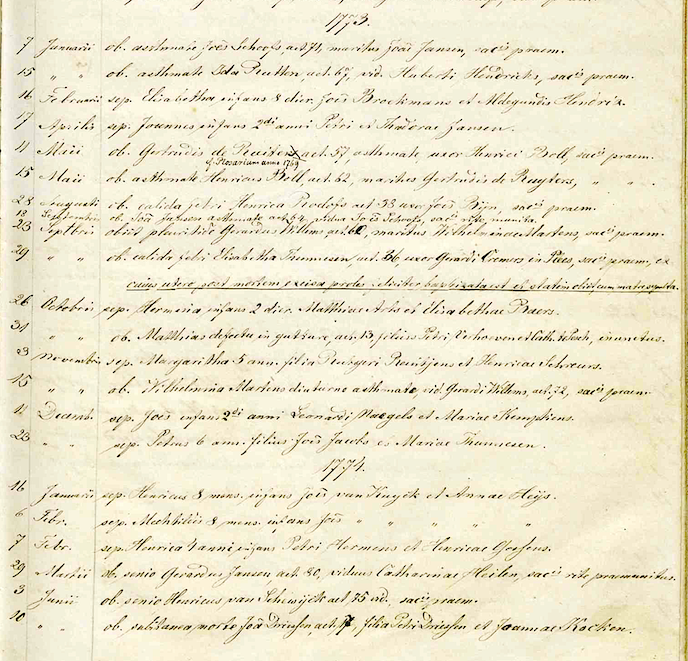 1773.
7 Januarii ob. asthmate Joês Schoofs aet. 71, maritus Joâ Jansen, sacîs praem.
15 " " ob. asthmate Ida aet. 67, vid. Huberti Hendrickx, sacîs praem.
16 Februarii sep. Elisabetha infans 8 dier. Joês Broekmans et Aldegundis Hendrix.
17 Aprilis sep. Joannes infans 2di anni Petri et Theodorae Jansen.
11 Maii ob. Gertrudis de aet. 57, asthmate, uxor Henrici Boll, sacîs praem.
f. Rosarium anno 1769
15 Maii ob. asthmate Henricus Boll, aet. 62, maritus Gertrudis de Ruyters, " " .
28 Augusti ob. calida febri Henrica aet. 53 uxor Joês Bijn, sacîs praem.
18 Septembris ob. Joâ Jansen asthmate aet. 64, vidua Joês Schoofs, sacîs rite munita.
23 Septbris obiit Gerardus Willms, aet. 60, maritus Wilhelminae Martens, sacîs praem.
29 " " ob. calida febri Elisabetha Thunnesen, aet. 36, uxor Gerardi Cremers in Rees, sacîs praem, ex
cuius utero, post mortem excisa proles baptizata est et statim cum matre sepulta.
26 Octobris sep. Hermina infans 2 dier. Matthiae Arts et Elisabethae Baers.
31 " " ob. Matthias defectu in gutture, aet. 13, filius Petri et Cath. inunctus.
3 Novembris sep. Margaritha 5 ann. filia Rutgeri Reintjens et Henricae Schreurs.
15 " " ob. Wilhelmina Martens diuturno asthmate, vid. Gerardi Willms, aet. 72, sacîs praem.
12 Decemb. sep. Joês infans 2di anni Leonardi Naegels et Mariae Kempkens.
23 " " sep. Petrus 6 ann. filius Joês Jacobs et Mariae Thunnesen.
1774.
16 Januarii sep. Henricus 8 mens. infans Joês van Kuyck et Annae Heijs.
6 Febr. sep. Mechtildis 8 mens. infans Joês " " " " "
7 Febr. sep. Henrica 4 anni infans Petri Hermens et Henricae Goossens.
29 Martii ob. senio Gerardus Jansen aet. 80, viduus Catharinae Heilen, sacîs rite praemunitus.
3 Junii ob. senio Henricus van Schewijck aet. 75 vid. sacîs praem.
10 " " ob. subitanea morte Joâ Driessen, aet. 17, filia Petri Driessen et Joannae Kocken.